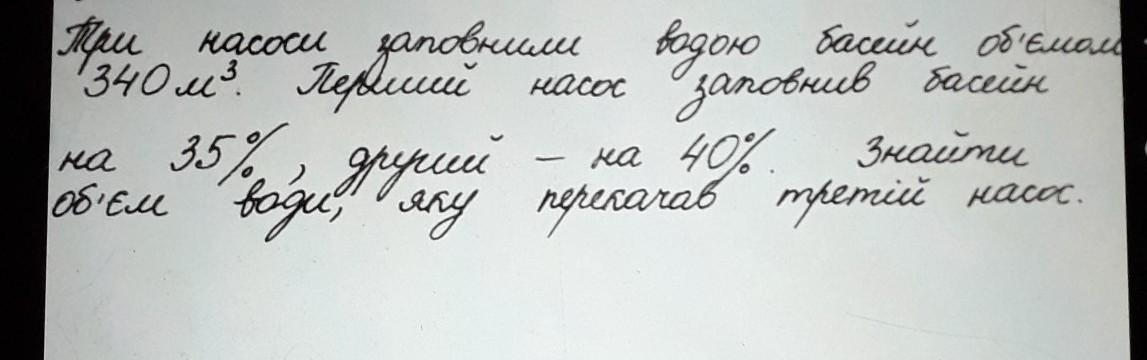 Три насоси заповнили водою басейн об'ємом
340 м³. Перший насос заповнив басейн
на 35%, другий – на 40%. Знайти
об'єм води, яку перекачав третій насос.